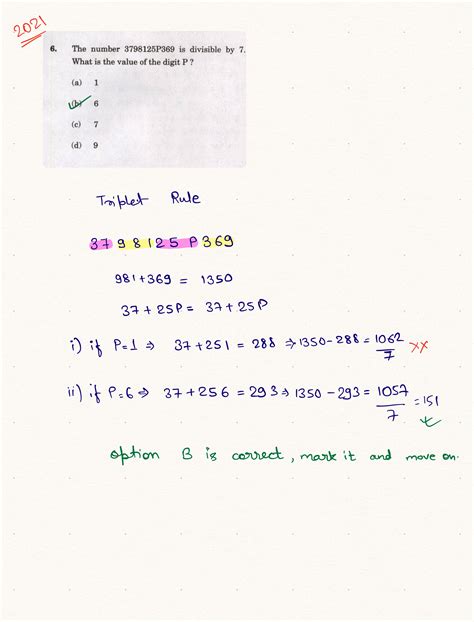 2021
6. The number 3798125P369 is divisible by 7.
What is the value of the digit P ?
(a) 1
(b) 6
(c) 7
(d) 9
Triplet Rule
3798125P369
981+369 = 1350
37 + 25P = 37 + 25P
i) if P=1 ⇒ 37+251 = 288 ⇒ 1350-288 = 1062/7 ××
ii) if P=6 ⇒ 37+256 = 293 ⇒ 1350-293 = 1057/7 = 151
option B is correct, mark it and move on.